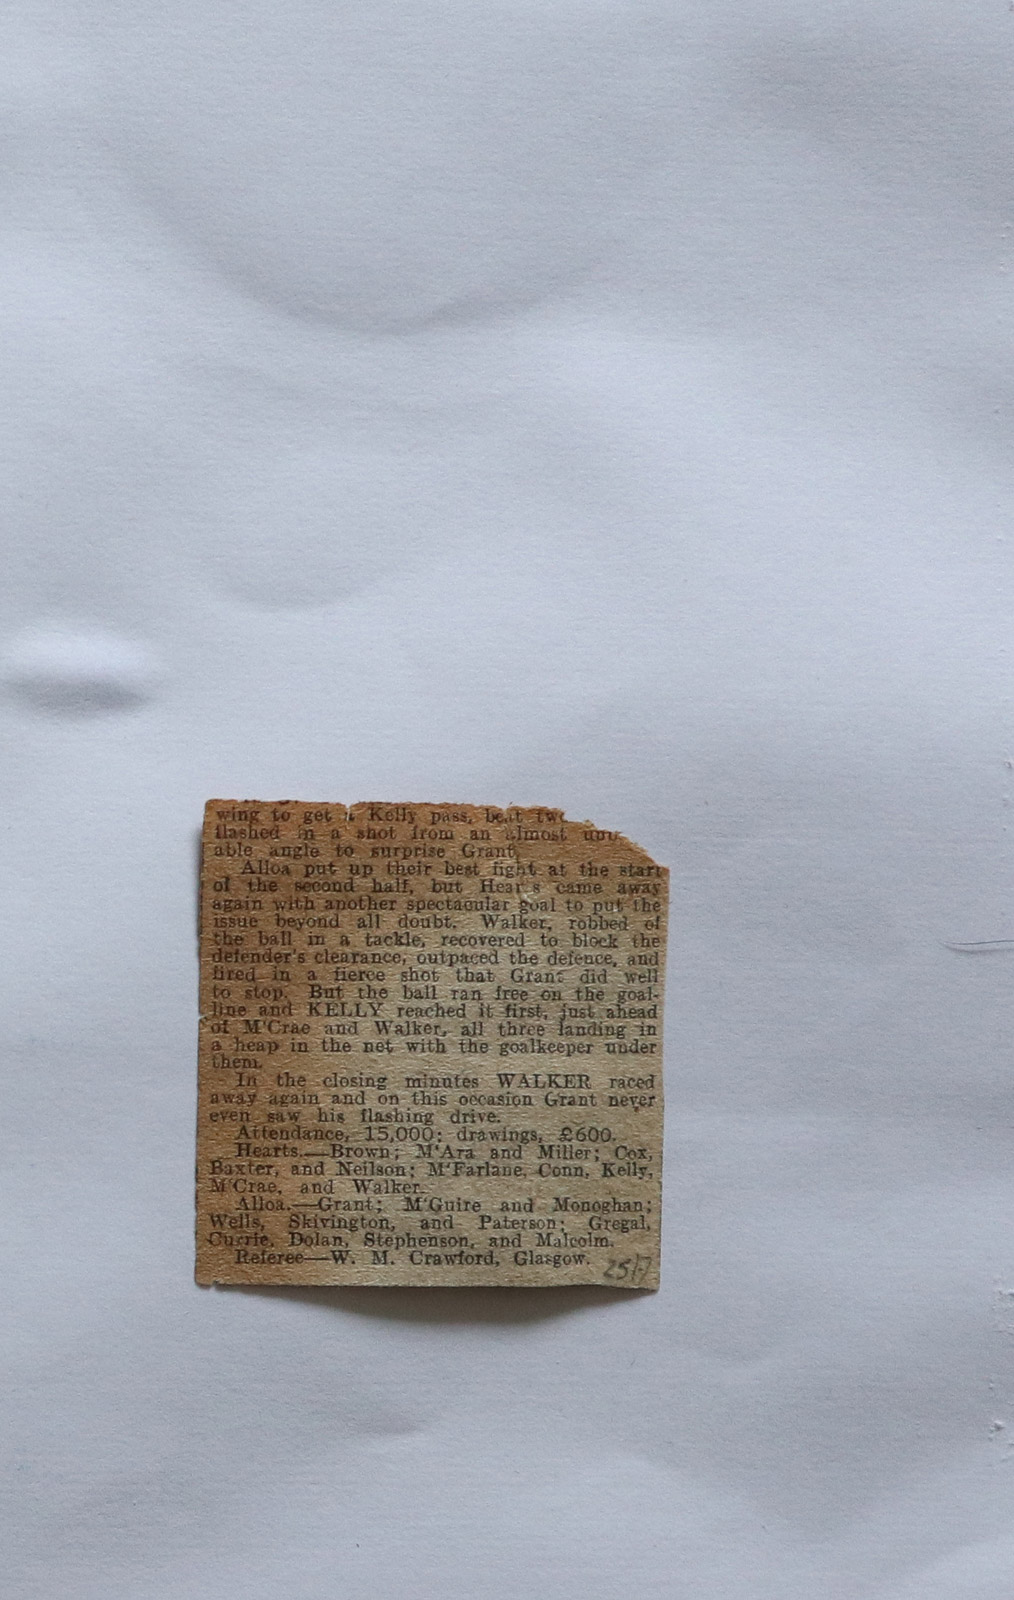 wing to get a Kelly pass, beat two
flashed in a shot from an almost
able angle to surprise Grant.
Alloa put up their best fight at the start
of the second half, but Hear s came away
again with another spectacular goal to put the
issue beyond all doubt. Walker, robbed of
the ball in a tackle, recovered to block the
defender's clearance, outpaced the defence, and
fired in a fierce shot that Grant did well
to stop. But the ball ran free on the goal-
line and KELLY reached it first, just ahead
of M'Crae and Walker, all three landing in
a heap in the net with the goalkeeper under
them.
In the closing minutes WALKER raced
away again and on this occasion Grant never
even saw his flashing drive.
Attendance, 15,000; drawings, £600.
Hearts.—Brown; M'Ara and Miller; Cox,
Baxter, and Neilson; M'Farlane, Conn, Kelly,
M'Crae, and Walker.
Alloa.—Grant; M'Guire and Monoghan;
Wells, Skivington, and Paterson; Gregal,
Currie, Dolan, Stephenson, and Malcolm.
Referee—W. M. Crawford, Glasgow.
25/7